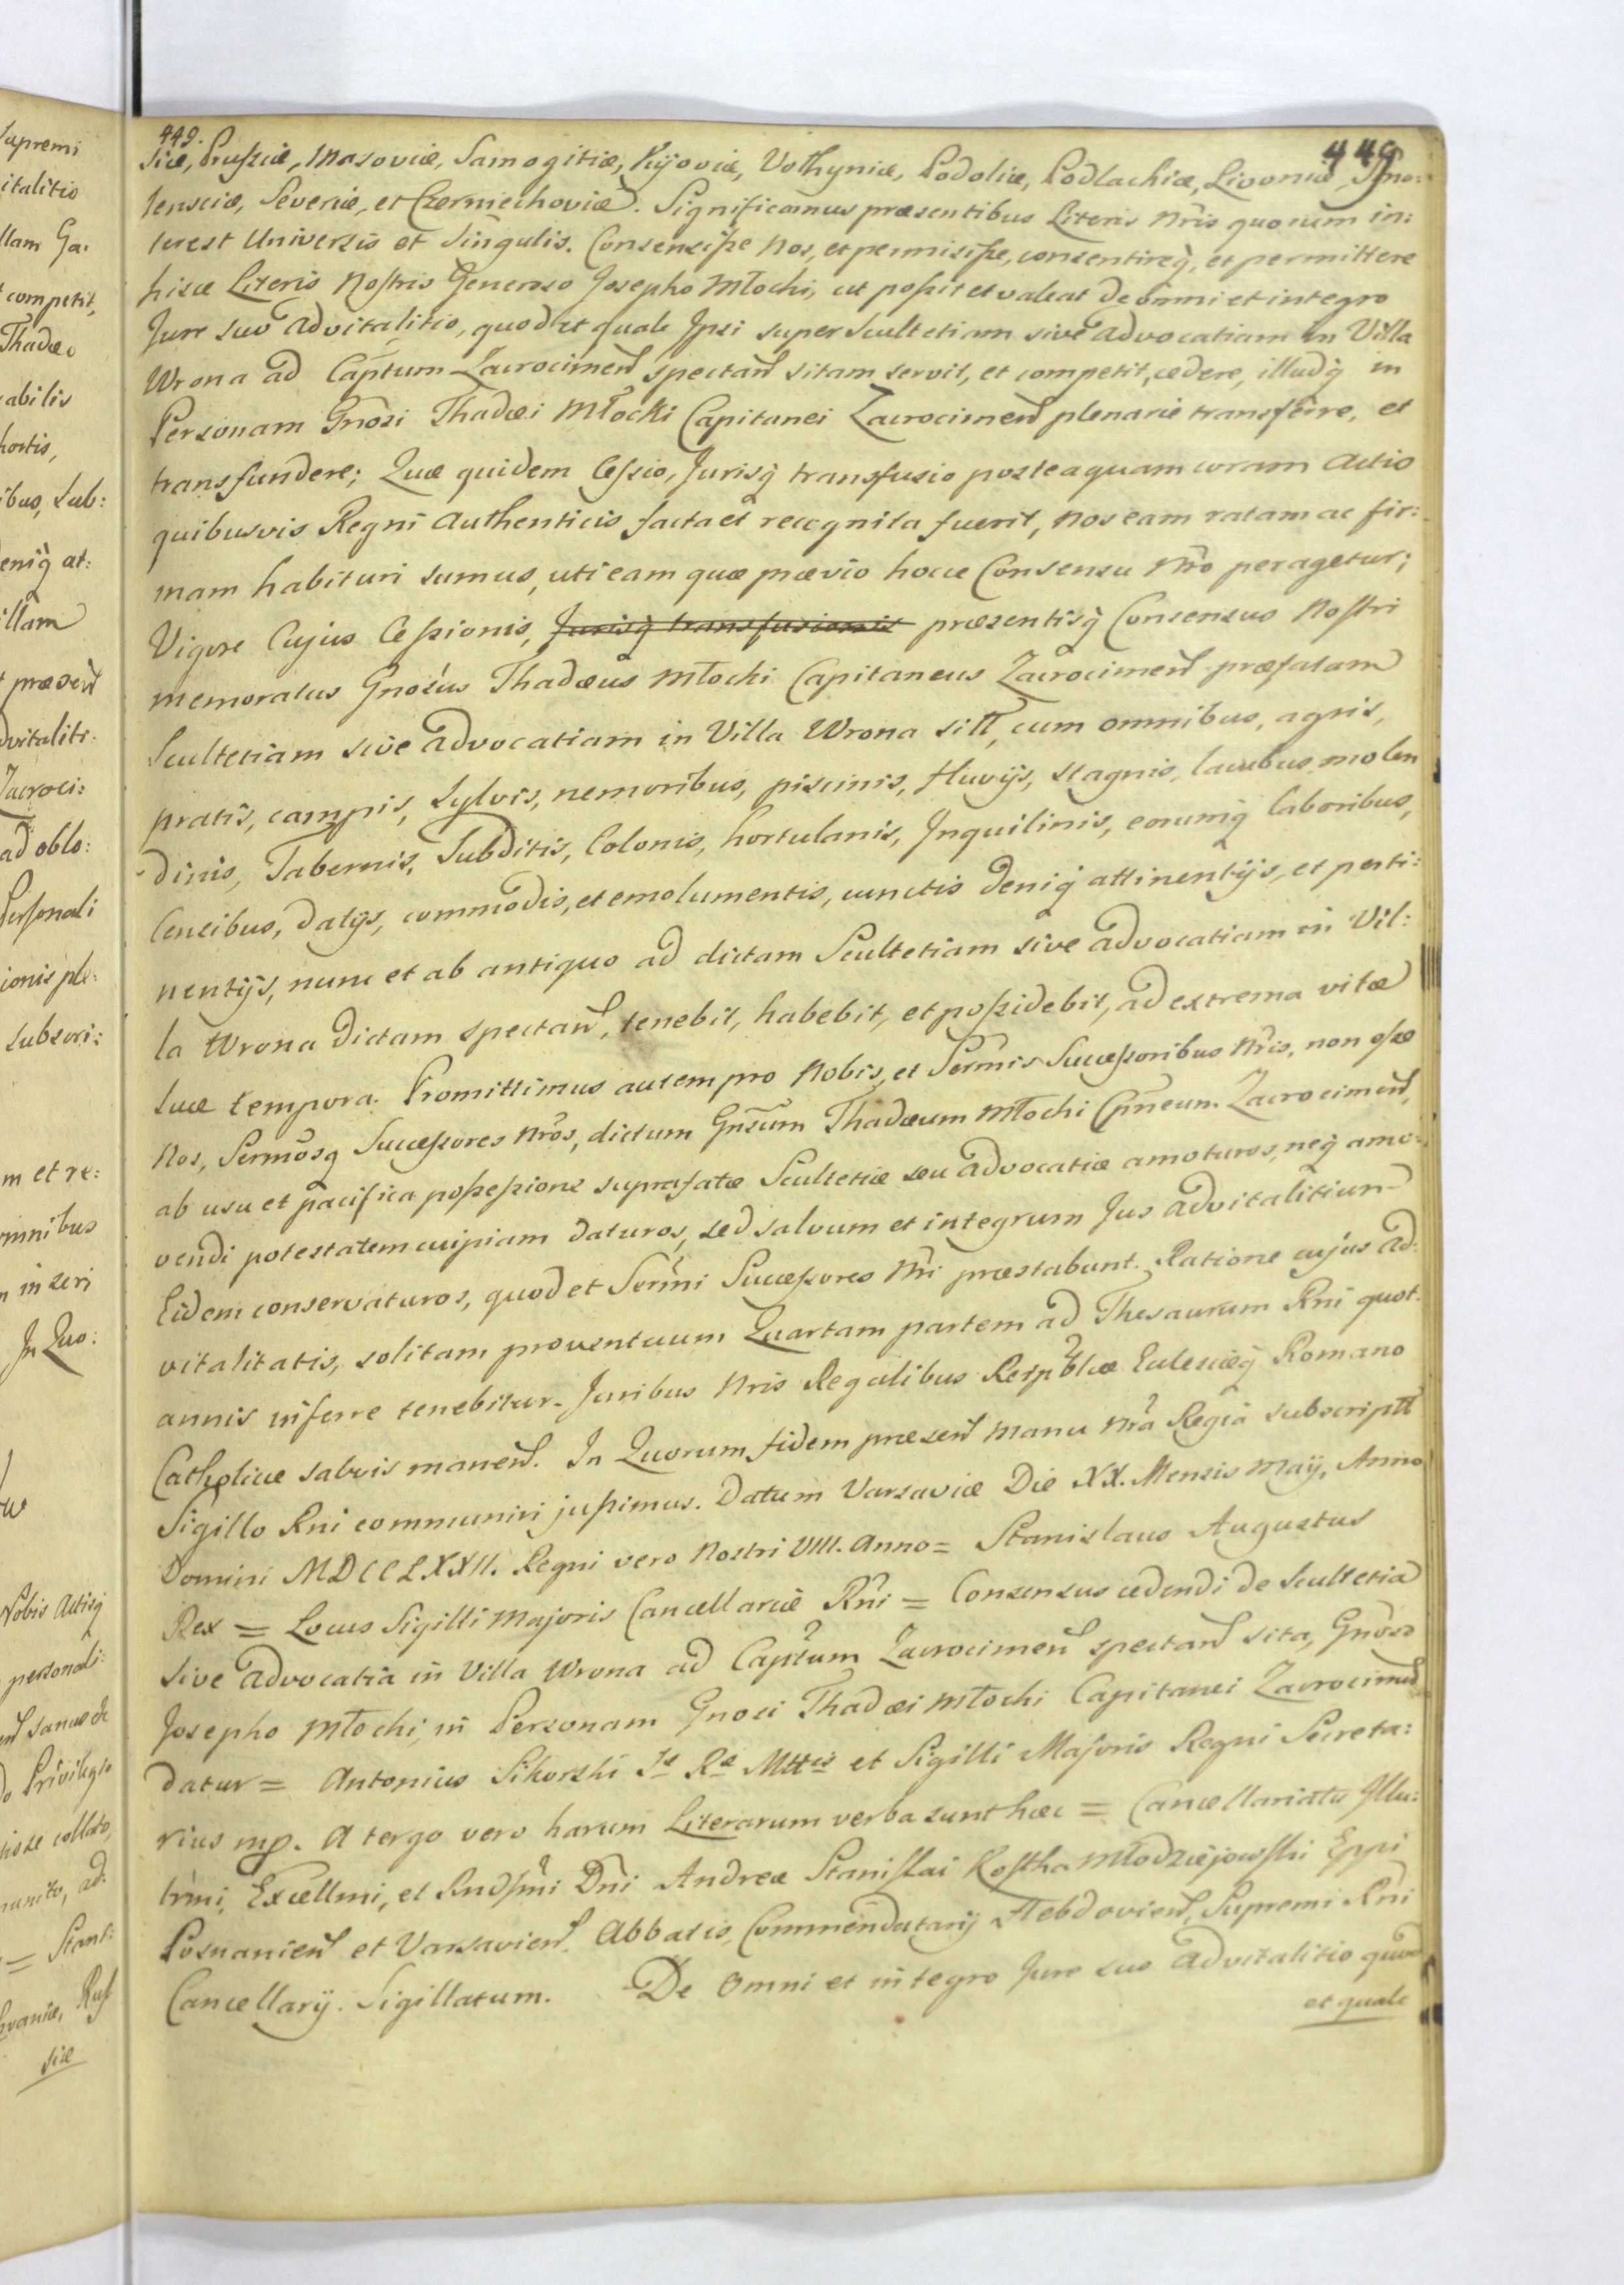 449.
449
siæ, Prussiæ, Masoviæ, Samogitiæ, Kijoviæ, Volhyniæ, Podoliæ, Podlachiæ, Livoniæ, Smo:
lensciæ, Severiæ, et Czerniechoviæ. Significamus præsentibus Literis Nr̃is quorum in:
terest Universis et Singulis. Consensisse Nos, et permisisse, consentireq́, et permittere
hisce Literis Nostris Generoso Josepho Młocki, ut possit et valeat de omni et integro
Jure suo advitalitio, quod et quale Ipsi super Scultetiam sive advocatiam in Villa
Wrona ad Cap̃tum Zacrocimen̄ spectan̄ sitam servit, et competit, cedere, illudq́ in
Personam Gnõsi Thadæi Młocki Capitanei Zacrocimen̄ plenarie transferre, et
transfundere; Quæ quidem Cessio, Jurisq́ transfusio posteaquam coram Actis
quibusvis Regni Authenticis facta et recognita fuerit, Nos eam ratam ac fir:
mam habituri sumus, uti eam quæ prævio hocce Consensu Nr̃o peragetur;
Vigore Cujus Cessionis, Jurisq́ transfusionis præsentisq́ Consensus Nostri
memoratus Gnõsus Thadæus Młocki Capitaneus Zacrocimen̄ præfatam
Scultetiam sive advocatiam in Villa Wrona sitt, cum omnibus, agris,
pratis, campis, sylvis, nemoribus, piscinis, fluvijs, stagnis, lacubus, molen
dinis, Tabernis, Subditis, Colonis, hortulanis, Inquilinis, eorumq́ laboribus,
Censibus, datijs, commodis, et emolumentis, cunctis deniq́ attinentijs, et perti:
nentijs, nunc et ab antiquo ad dictam Scultetiam sive advocatiam in Vil:
la Wrona dictam spectan̄, tenebit, habebit, et possidebit, ad extrema vitæ
suæ tempora. Promittimus autem pro Nobis, et Serm̃is Successoribus Nr̃is, non esse
Nos, Serm̃osq́ Successores Nr̃os, dictum Gñsum Thadæum Młocki Cp̃neum Zacrocimen̄,
ab usu et pacifica possessione suprafatæ Scultetiæ seu advocatiæ amoturos, neq́ amo:
vendi potestatem cuipiam daturos, sed salvum et integrum Jus advitalitium
Eidem conservaturos, quod et Serm̃i Successores Nr̃i præstabunt. Ratione cujus ad:
vitalitatis, solitam proventuum Quartam partem ad Thesaurum Rni quot
annis inferre tenebitur. Juribus Nr̃is Regalibus Reipb̃licæ Ecclesiæq́ Romano
Catholicæ salvis manen̄. In Quorum fidem præsen̄ manu Nr̃a Regia subscriptt
Sigillo Rni communiri jussimus. Datum Varsaviæ Die XX. Mensis Maij, Anno
Domini MDCCLXXII. Regni vero Nostri VIII. Anno = Stanislaus Augustus
Rex = Locus Sigilli Majoris Cancellariæ Rñi = Consensus cedendi de Scultetia
sive advocatia in Villa Wrona ad Cap̃tum Zacrocimen̄ spectan̄ sita, Gnõso
Josepho Młocki, in Personam Gnosi Thadæi Młocki Capitanei Zacrocimen̄
datur = Antonius Sikorski Sæ Ræ Mttis et Sigilli Majoris Regni Secreta:
rius mp. A tergo vero harum Literarum verba sunt hæc = Cancellariatu Illu:
trm̃i, Excellmi, et Rndsm̃i Dñi Andreæ Stanislai Kostka Młodziejowski Eppi
Posnanien̄ et Varsavien̄. Abbatis, Commendatarij Hebdovien̄, Supremi Rñi
Cancellarij. Sigillatum. De Omni et integro Jure suo advitalitio quod
et quale